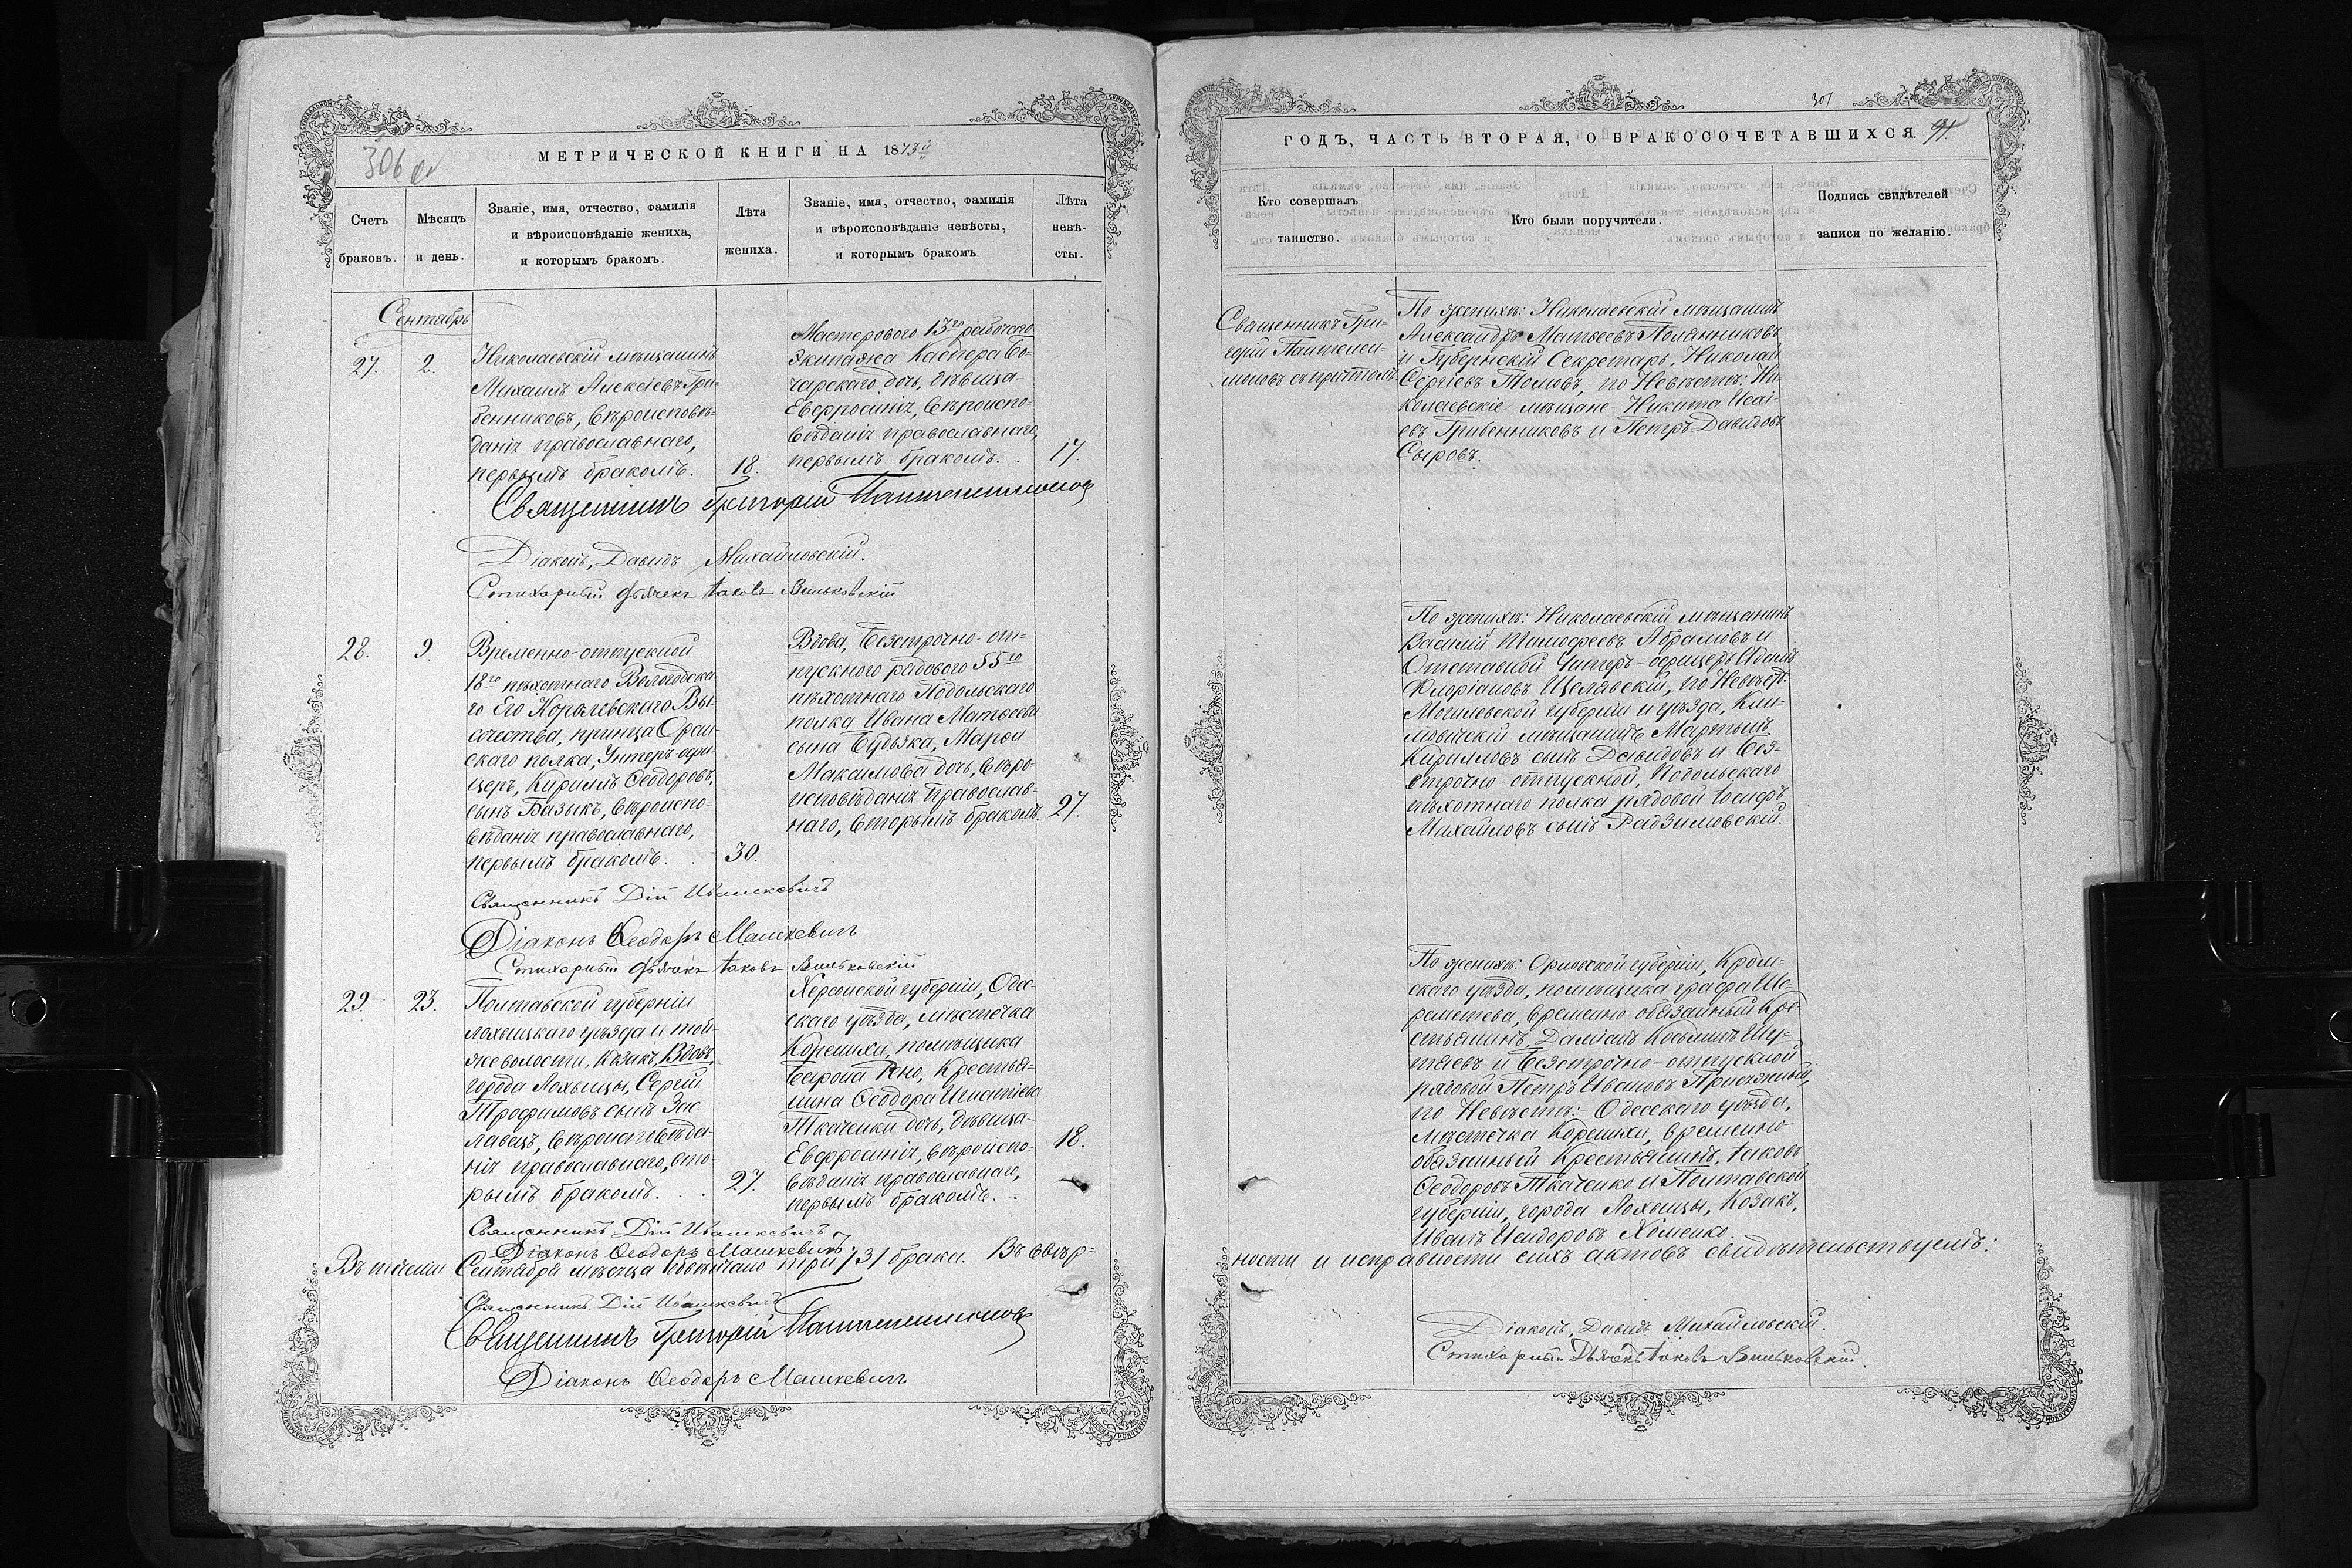 306 об
МЕТРИЧЕСКОЙ КНИГИ НА 1873й
Счетъ
браковъ.
Мѣсяцъ
и день.
Званіе, имя, отчество, фамилія
и вѣроисповѣданіе жениха,
и которымъ бракомъ.
Лѣта
жениха.
Званіе, имя, отчество, фамилія
и вѣроисповѣданіе невѣсты,
и которымъ бракомъ.
Лѣта
невѣ-
сты.
Сентябрь
27.
2.
Николаевскій мѣщанинъ
Михаилъ Алексіевъ Гри-
бенниковъ, вѣроисповѣ-
данія православнаго,
первымъ бракомъ.
18.
Мастероваго 13го рабочаго
экипажа Каспера Бо-
чарскаго дочь, дѣвица
Евфросинія, вѣроиспо-
вѣданія православнаго,
первымъ бракомъ.
17.
Священникъ Григорій Пантелеимоновъ
Діаконъ, Давидъ Михайловскій.
Стихарный дьячекъ Іаковъ Виньковскій
28.
9.
Временно-отпускной
18го пѣхотнаго Вологодска-
го Его Королевскаго Вы-
сочества, принца Оран-
скаго полка, Унтеръ-офи-
церъ, Кирилъ Ѳеодоровъ
сынъ Базыкъ, вѣроиспо-
вѣданія православнаго,
первымъ бракомъ.
30.
Вдова, Безсрочно-от-
пускного рядового 55го
пѣхотнаго Подольскаго
полка Ивана Матѳеева
сына Будзяка, Марѳа
Максимова дочь, вѣро-
исповѣданія Православ-
наго, вторымъ бракомъ.
27.
Священникъ Дій Ивашкевичъ
Діаконъ Ѳеодоръ Машкевичъ
Стихарный дьячекъ Іаковъ Виньковскій
29.
23.
Полтавской губерніи
лохвицкаго уѣзда и той-
же волости, Козакъ, Вдовъ,
города Лохвицы, Сергій
Трофимовъ сынъ Зас-
лавецъ, вѣроисповѣда-
нія православнаго, вто-
рымъ бракомъ.
27.
Херсонской губерніи, Одес-
скаго уѣзда, мѣстечка
Коренихи, помѣщика
Барона Рено, Крестья-
нина Ѳеодора Игнатіева
Ткаченки дочь, дѣвица
Евфросинія, вѣроиспо-
вѣданія православнаго,
первымъ бракомъ.
18.
Священникъ Дій Ивашкевичъ
Діаконъ Ѳеодоръ Машкевичъ
Въ теченіи Сентября мѣсяца повѣнчано три /3/ брака. Въ вѣр-
Священникъ Дій Ивашкевичъ
Священникъ Григорій Пантелеимоновъ
Діаконъ Ѳеодоръ Машкевичъ
307
ГОДЪ, ЧАСТЬ ВТОРАЯ, О БРАКОСОЧЕТАВШИХСЯ.
Кто совершалъ
таинство.
Кто были поручители.
Подпись свидѣтелей
записи по желанію.
Священникъ Гри-
горій Пантелеи-
моновъ съ причтомъ
По женихѣ: Николаевскій мѣщанинъ
Александръ Матѳеевъ Полянниковъ
и Губернскій Секретарь, Николай
Сергіевъ Томовъ, по Невѣстѣ: Ни-
колаевскіе мѣщане - Никита Исаі-
евъ Грибенниковъ и Петръ Давидовъ
Сыровъ.
По женихѣ: Николаевскій мѣщанинъ
Василій Тимоѳеевъ Абрамовъ и
Отставной Унтеръ-офицеръ Адамъ
Флоріановъ Щелявскій, по Невѣстѣ:
Могилевской губерніи и уѣзда, Кли-
мовичскій мѣщанинъ Мартынъ
Кириловъ сынъ Давидовъ и Без-
срочно-отпускной, Подольскаго
пѣхотнаго полка рядовой Іосифъ
Михайловъ сынъ Радзимовскій.
По женихѣ: Орловской губерніи, Кром-
скаго уѣзда, помѣщика графа Ше-
реметева, временно-обязанный Кре-
стьянинъ, Даміанъ Косьминъ Шу-
таевъ и Безсрочно-отпускной
рядовой Петръ Ивановъ Присяжный,
по Невѣстѣ: Одесскаго уѣзда,
мѣстечка Коренихи, временно
обязанный Крестьянинъ, Іаковъ
Ѳеодоровъ Ткаченко и Полтавской
губерніи, города Лохвицы, Козакъ,
Иванъ Исидоровъ Хоменко.
ности и исправности сихъ актовъ свидѣтельствуемъ:
Діаконъ, Давидъ Михайловскій.
Стихарный Дьячекъ Іаковъ Виньковскій.